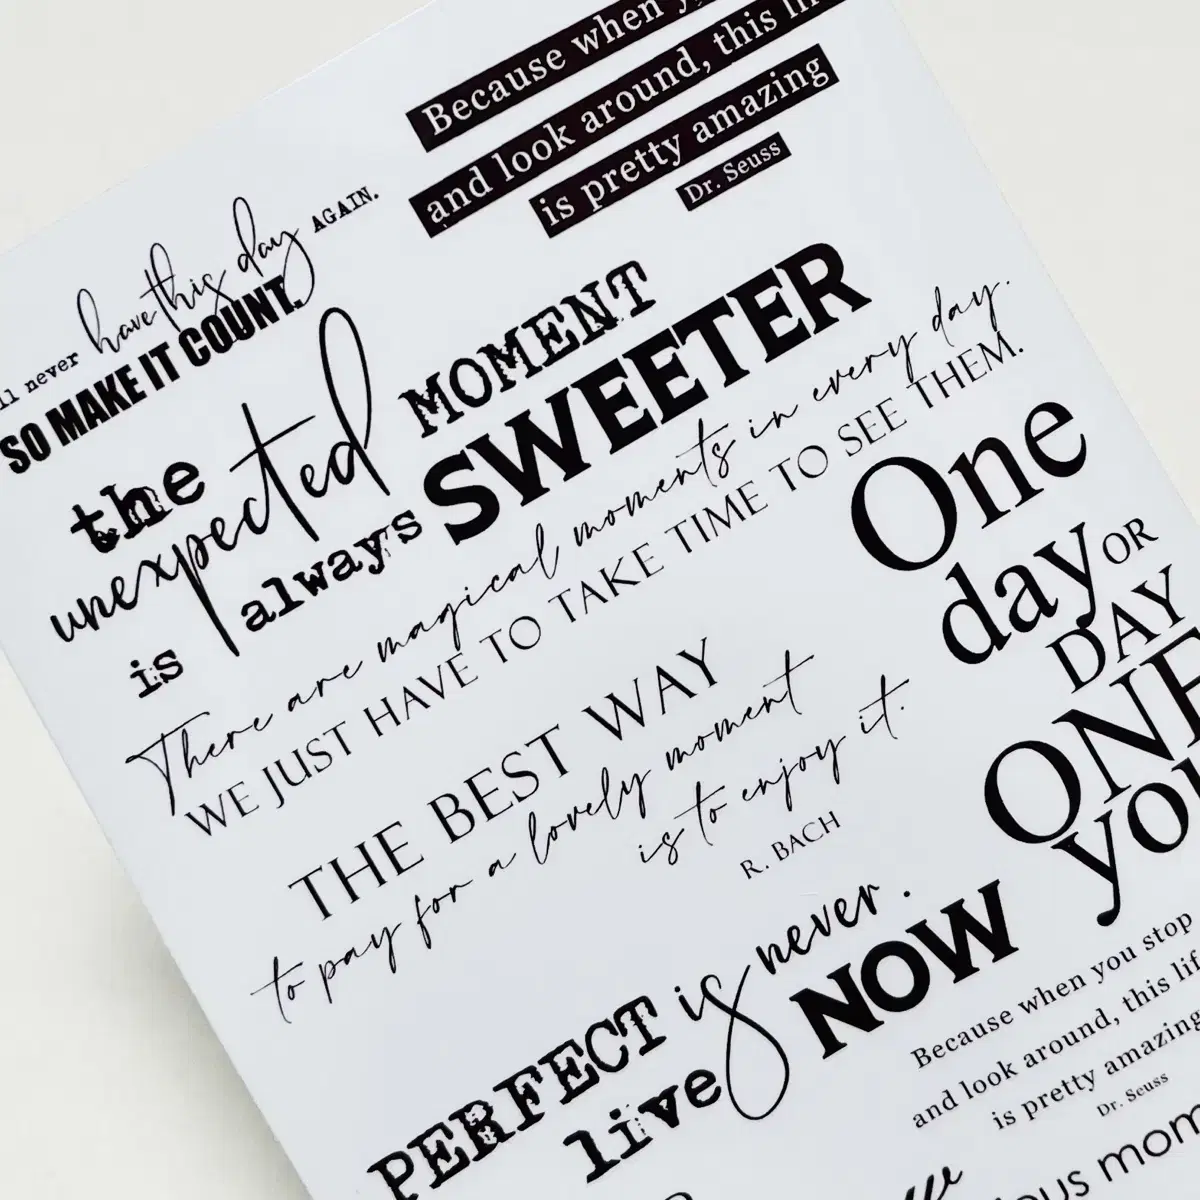 Because when
and look around, this
is pretty amazing
Dr. Seuss
never have this day AGAIN.
SO MAKE IT COUNT.
the
unexpected
MOMENT
is always SWEETER
There are magical moments in every day.
WE JUST HAVE TO TAKE TIME TO SEE THEM.
One
day OR
DAY
ONE
THE BEST WAY
to pay for a lovely moment
is to enjoy it.
R. BACH
PERFECT is never.
live NOW
Because when you stop
and look around, this
is pretty amazing
Dr. Seuss